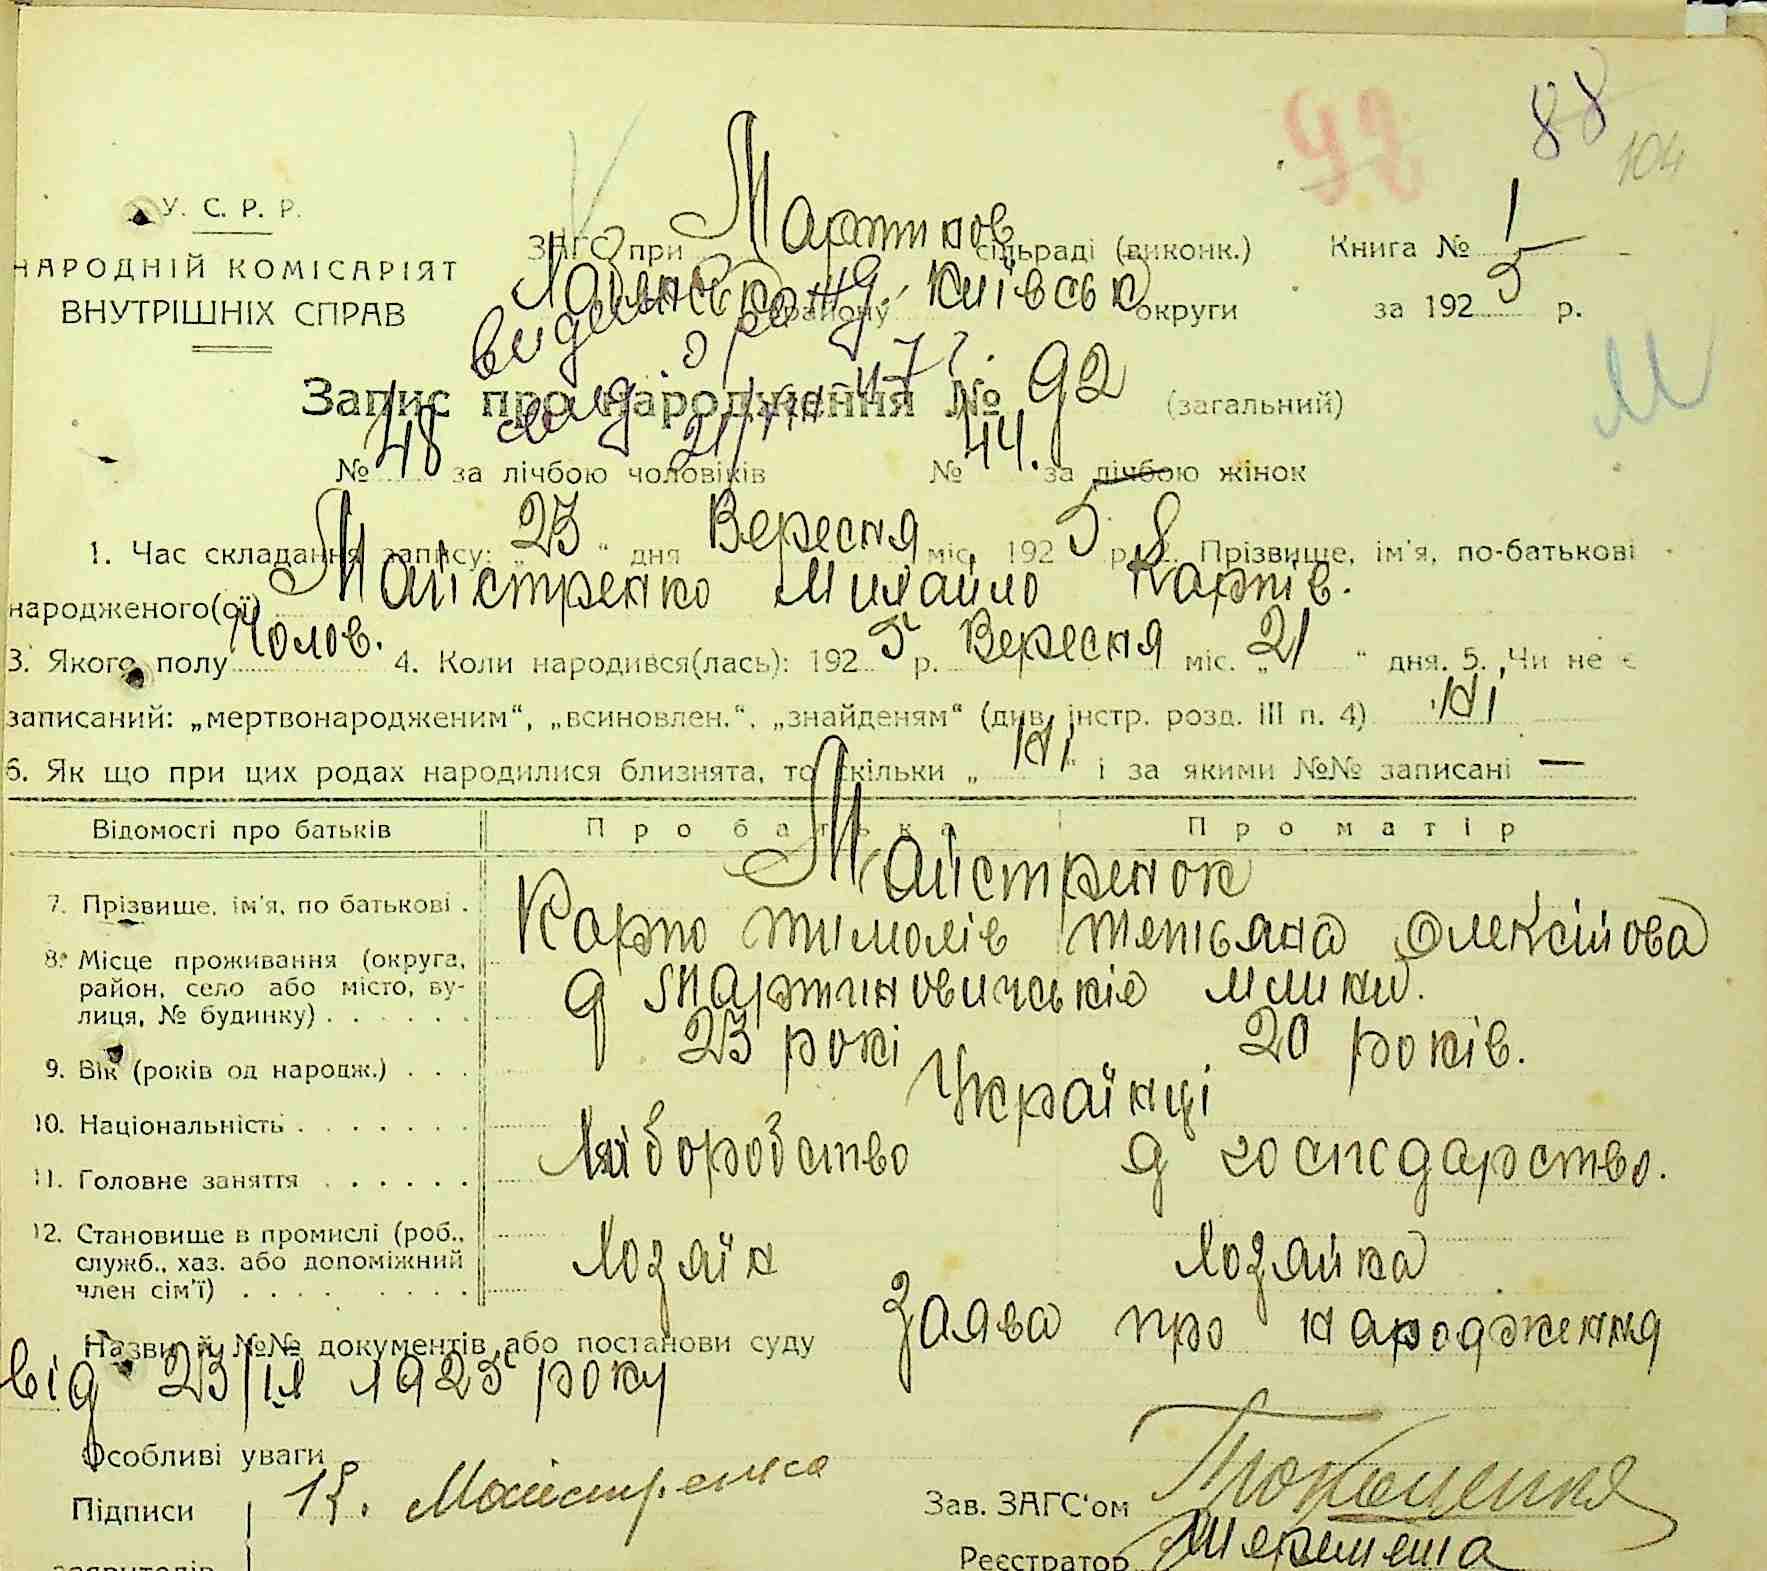 92 88
104
У. С. Р. Р.
НАРОДНІЙ КОМІСАРІЯТ
ВНУТРІШНІХ СПРАВ
ЗАГС при Мартинов сільраді (виконк.) Книга № 1
району Київськ округи за 1925 р.
М
Запис про народження № 92 (загальний)
№ 48 за лічбою чоловіків № 44. за лічбою жінок
1. Час складання запису: „ 23 “ дня Вересня міс. 1925 р. 2. Прізвище, ім'я, по-батькові
народженого(ої) Майстренко Михайло Карпів.
3. Якого полу Чолов. 4. Коли народився(лась): 1925 р. Вересня міс. „ 21 “ дня. 5. Чи не є
записаний: „мертвонародженим“, „всиновлен.“, „знайденям“ (див. інстр. розд. III п. 4) Ні
6. Як що при цих родах народилися близнята, то скільки „ Ні “ і за якими №№ записані —
Відомості про батьків Про батька Про матір
Майстренок
7. Прізвище, ім'я, по батькові . Карпо Тимохів Тетьяна Олексійова
8. Місце проживання (округа,
район, село або місто, ву-
лиця, № будинку) . . . . . .
9. Вік (років од народж.) . . . 23 рокі 20 років.
10. Національність . . . . . . . Українці
11. Головне заняття . . . . . . Хліборобство д господарство.
12. Становище в промислі (роб.,
служб., хаз. або допоміжний
член сім'ї) . . . . . . . . . Хозяїн Хозяйка
Назви й №№ документів або постанови суду Заява про народження
від 23/IX 1925 року
Особливі уваги
Підписи К. Майстренко Зав. ЗАГС'ом
Реєстратор